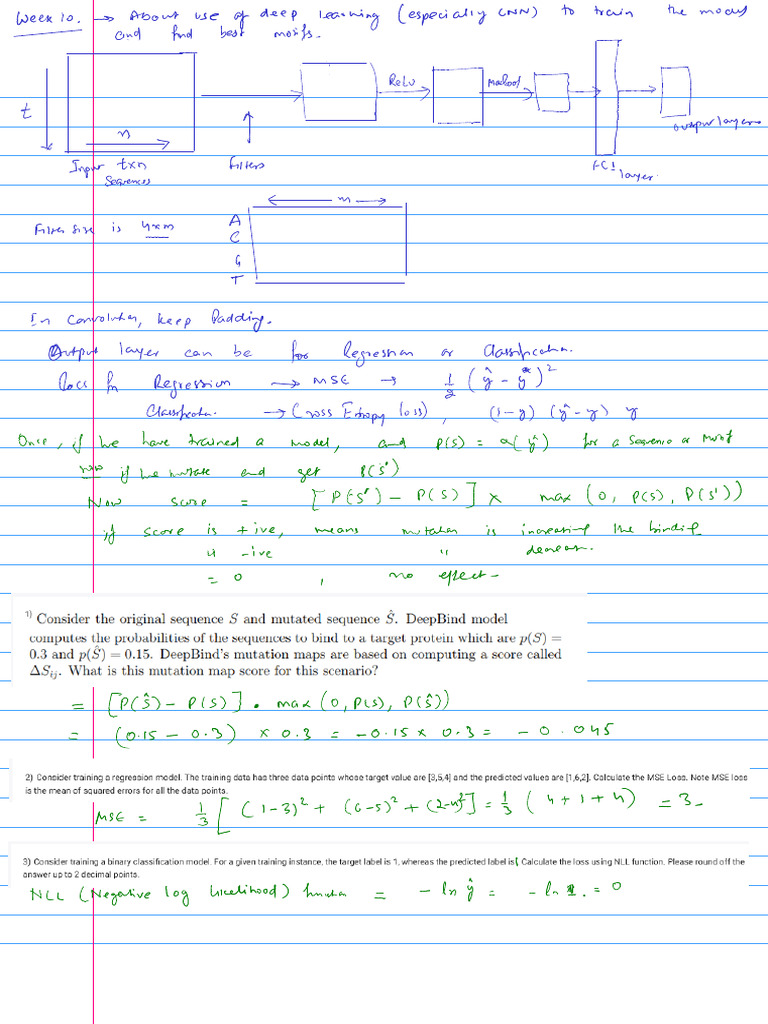 Week 10. → About use of deep learning (especially CNN) to train the model
and find best motifs.
ReLU
Maxpool
t
n
output layer
Input t×n
sequences
filters
FC layer
← m →
Filter size is 4×m
A
C
G
T
In Convolution, keep Padding.
Output layer can be for Regression or Classification.
Loss fn Regression → MSE → 1/2 (ŷ - y*)²
Classification → Cross Entropy loss), (1-y) (ŷ-y) y
Once, if we have trained a model, and P(S) = (ŷ) for a Sequence or Motif
if we mutate and get P(S')
Now score = [P(S') - P(S)] × max (0, P(S), P(S'))
if score is +ive, means mutation is increasing the binding
" -ive " decreases.
= 0 , no effect -
1) Consider the original sequence S and mutated sequence Ŝ. DeepBind model
computes the probabilities of the sequences to bind to a target protein which are p(S) =
0.3 and p(Ŝ) = 0.15. DeepBind's mutation maps are based on computing a score called
ΔSij. What is this mutation map score for this scenario?
= [P(Ŝ) - P(S)] . max (0, P(S), P(Ŝ))
= (0.15 - 0.3) × 0.3 = -0.15 × 0.3 = -0.045
2) Consider training a regression model. The training data has three data points whose target value are [3,5,4] and the predicted values are [1,6,2]. Calculate the MSE Loss. Note MSE loss
is the mean of squared errors for all the data points.
MSE = 1/3 [(1-3)² + (6-5)² + (2-4)²] = 1/3 (4+1+4) = 3
3) Consider training a binary classification model. For a given training instance, the target label is 1, whereas the predicted label is 1. Calculate the loss using NLL function. Please round off the
answer up to 2 decimal points.
NLL (Negative log likelihood) function = - ln ŷ = - ln 1. = 0